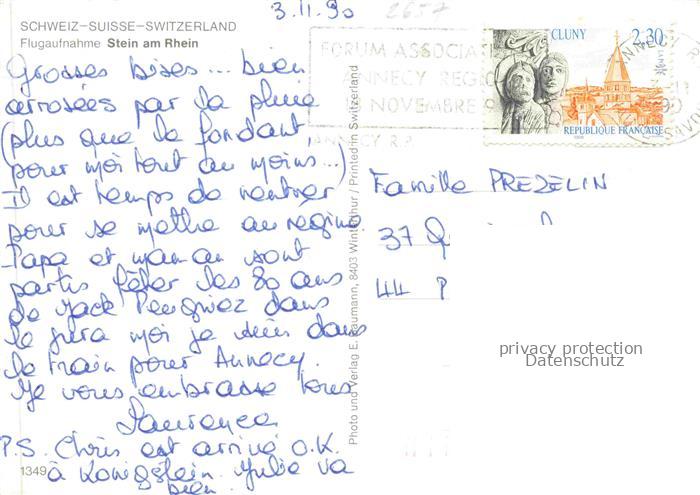 3.11.90
2657
SCHWEIZ-SUISSE-SWITZERLAND
Flugaufnahme Stein am Rhein
Grosses bises... bien
arrosées par la pluie
(plus que le fondant
pour moi tout au moins...)
Il est temps de rentrer
pour se mettre au régime.
Papa et maman sont
partis fêter les 80 ans
de Jack dans
le Jura moi je suis dans
le train pour Annecy.
Je vous embrasse tous
Laurence
P.S. Chris est arrivé O.K.
à Königstein. Julie va
bien.
1349
Photo und Verlag E. Baumann, 8403 Winterthur / Printed in Switzerland
FORUM ASSOCIATI
ANNECY REGIO
NOVEMBRE 9
ANNECY R.P.
CLUNY
2,30
REPUBLIQUE FRANÇAISE
ANNECY R
SAVOI
Famille PREZELIN
37
44 P
privacy protection
Datenschutz